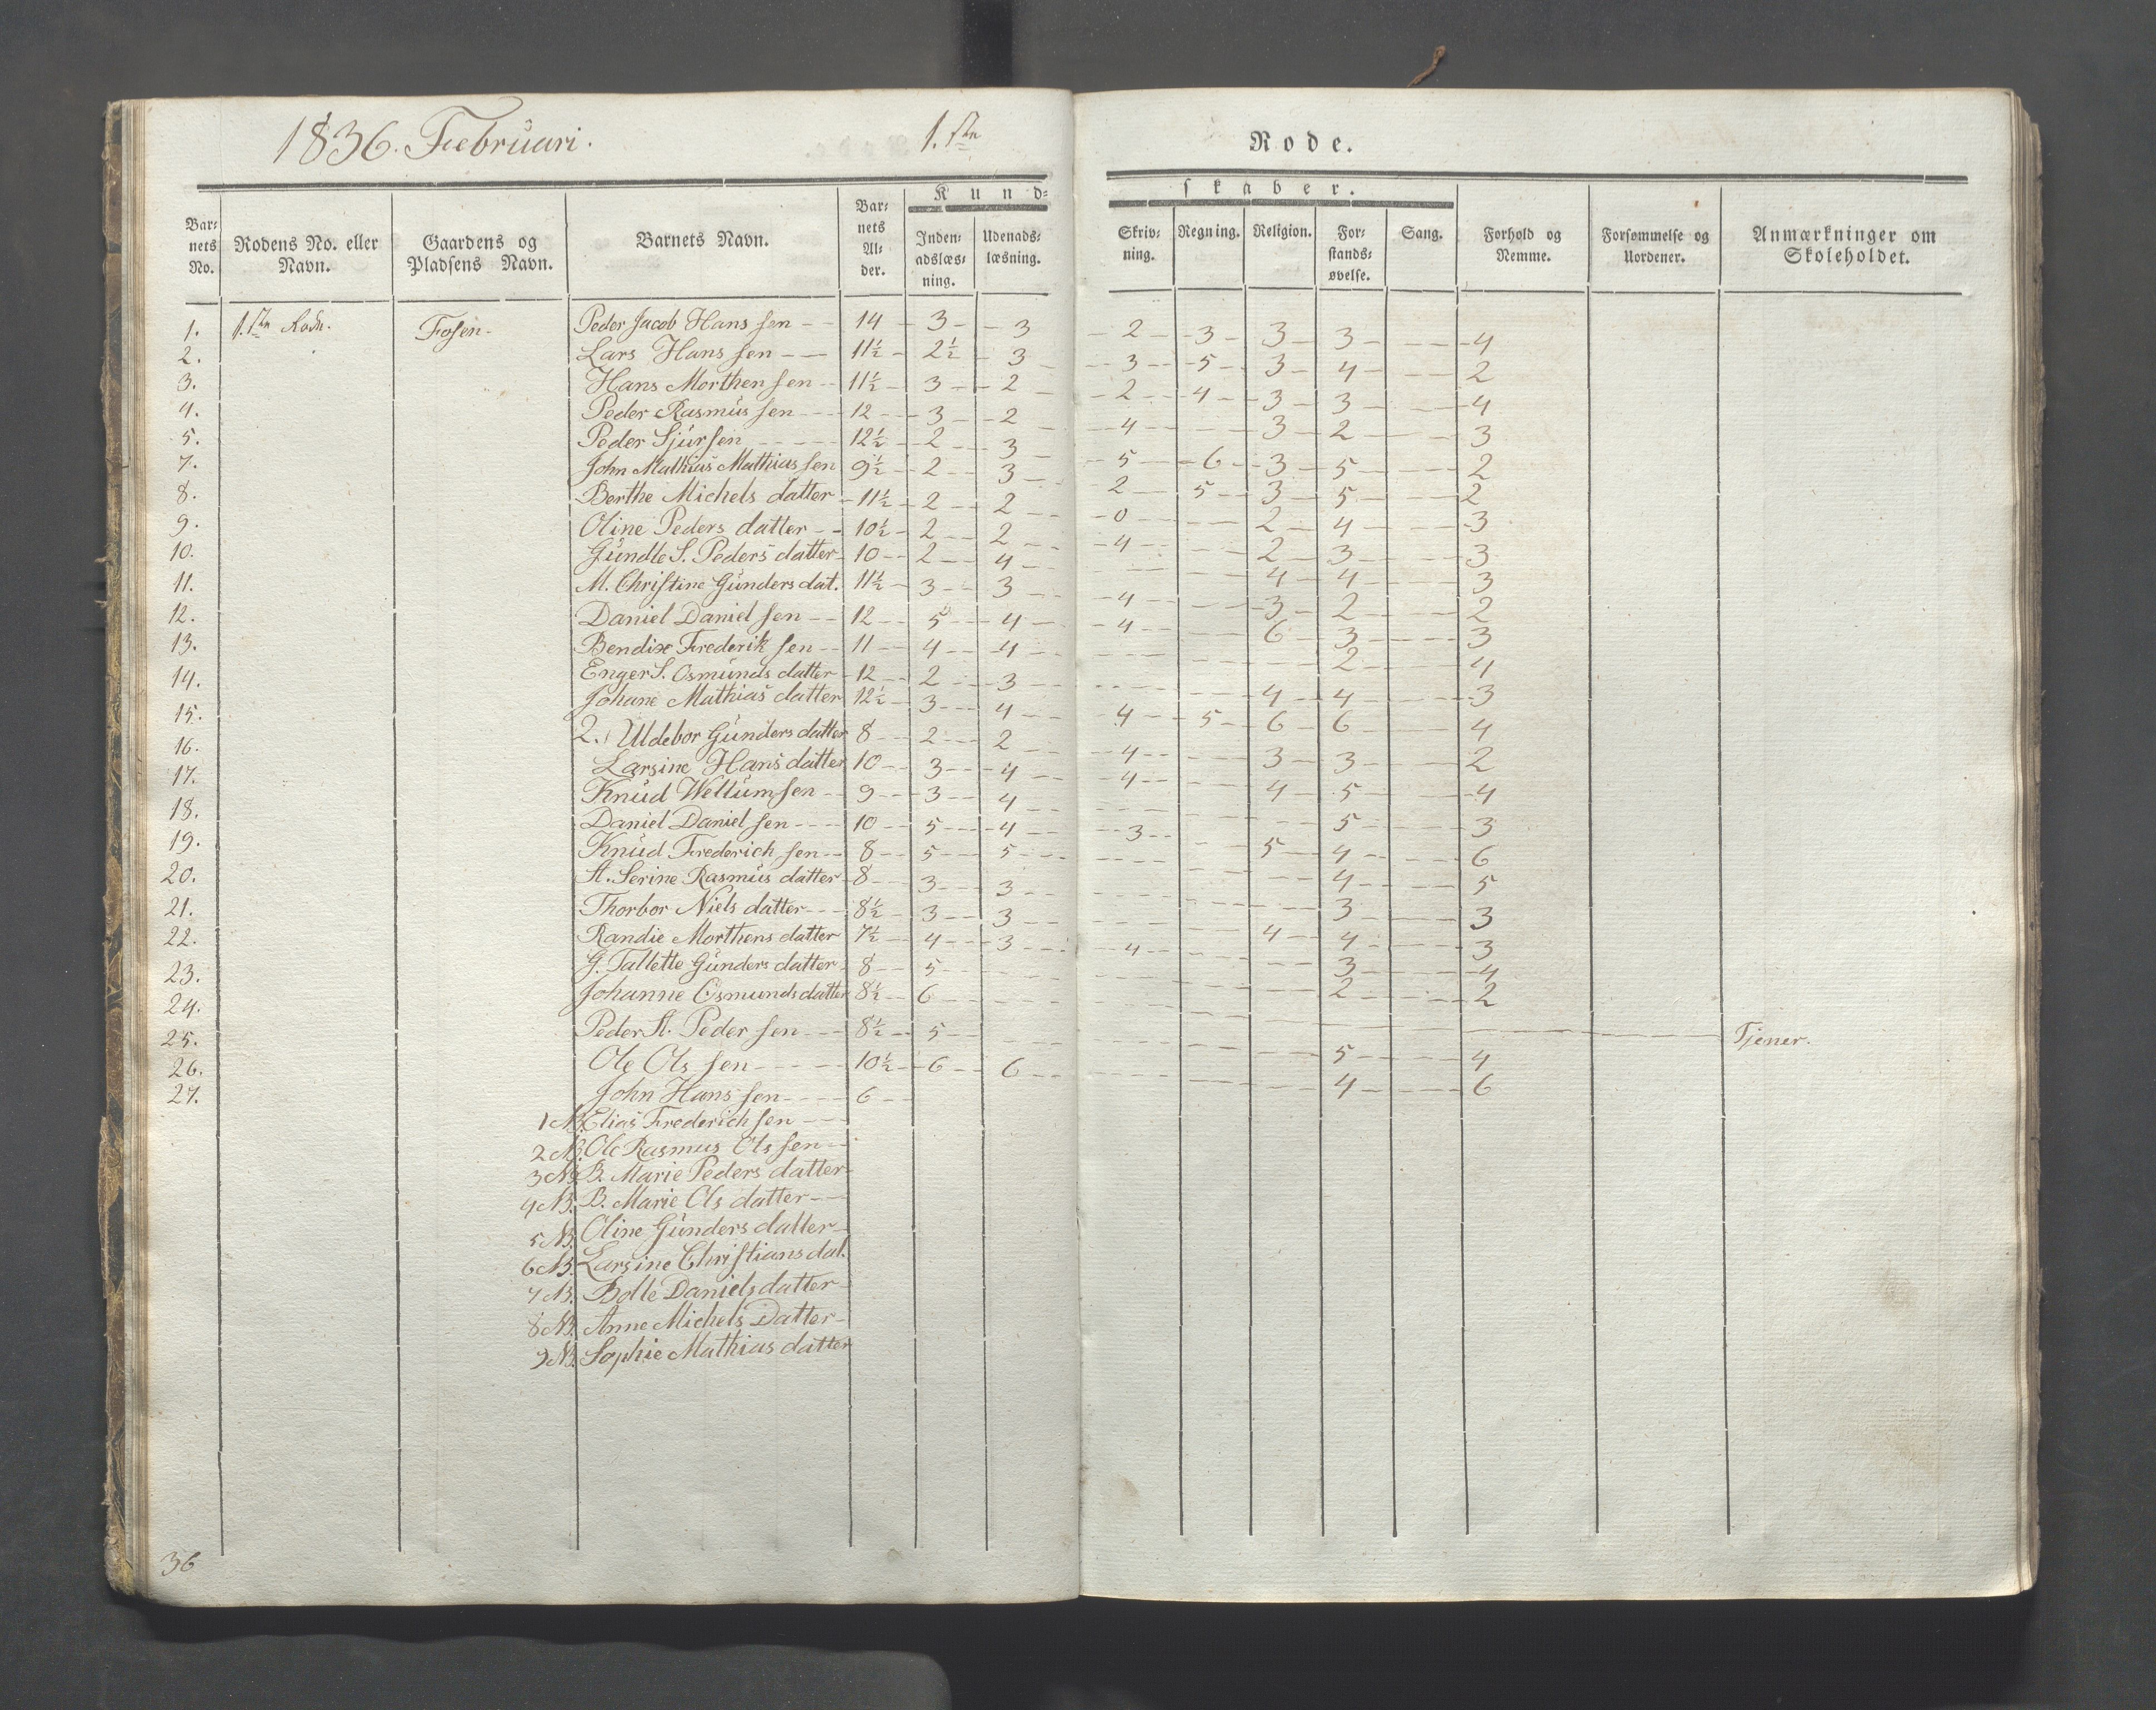 1836. Februari. 1.ste Rode.
Kund=skaber.
Bar=nets No. Rodens No. eller Navn. Gaardens og Pladsens Navn. Barnets Navn. Bar=nets Al=der. Inden=adslæs=ning. Udenads=læsning. Skriv=ning. Regning. Religion. For=stands=øvelse. Sang. Forhold og Nemme. Forsømmelse og Uordener. Anmærkninger om Skoleholdet.
1. 1.ste Rode. Fosen. Peder Jacob Hanssen 14 3 3 2 3 3 3 4
2. Lars Hanssen 11½ 2½ 3 3 5 3 4 2
3. Hans Morthensen 11½ 3 2 2 4 3 3 4
4. Peder Rasmussen 12 3 2 4 3 2 3
5. Peder Sjursen 12½ 2 3 5 6 3 5 2
7. John Mathias Mathiassen 9½ 2 3 2 5 3 5 2
8. Berthe Michels datter 11½ 2 2 0 2 4 3
9. Oline Peders datter 10½ 2 2 4 2 3 3
10. Gündle S. Peders datter 10 2 4 4 4 3
11. M. Christine Günders dat. 11½ 3 3 4 3 2 2
12. Daniel Danielsen 12 5 4 4 6 3 3
13. Bendix Frederiksen 11 4 4 2 4
14. Enger S. Osmunds datter 12 2 3 4 4 3
15. Johane Mathias datter 12½ 3 4 4 5 6 6 4
16. 2. Uldebor Günders datter 8 2 2 4 3 3 2
17. Larsine Hans datter 10 3 4 4 4 5 4
18. Knüd Wellümsen 9 3 4 5 3
19. Daniel Danielsen 10 5 4 3 5 4 6
20. Knüd Frederichsen 8 5 5 4 5
21. A. Serine Rasmüs datter 8 3 3 3 3
22. Thorbor Niels datter 8½ 3 3 4 4 3
23. Randie Morthens datter 7½ 4 3 4 3 4
24. G. Tallette Günders datter 8 5 2 2
25. Johanne Osmunds datter 8½ 6
26. Peder A. Pedersen 8½ 5 Tjener.
27. Ole Olssen 10½ 6 6 5 4
John Hanssen 6 4 6
1 NB. Elias Frederichsen
2 NB. Ole Rasmus Olssen
3 NB. B. Marie Peders datter
4 NB. B. Marie Ols datter
5 NB. Oline Günders datter
6 NB. Larsine Christians dat.
7 NB. Bolle Daniels datter
8 NB. Anne Michels Datter
9 NB. Sophie Mathias datter
36